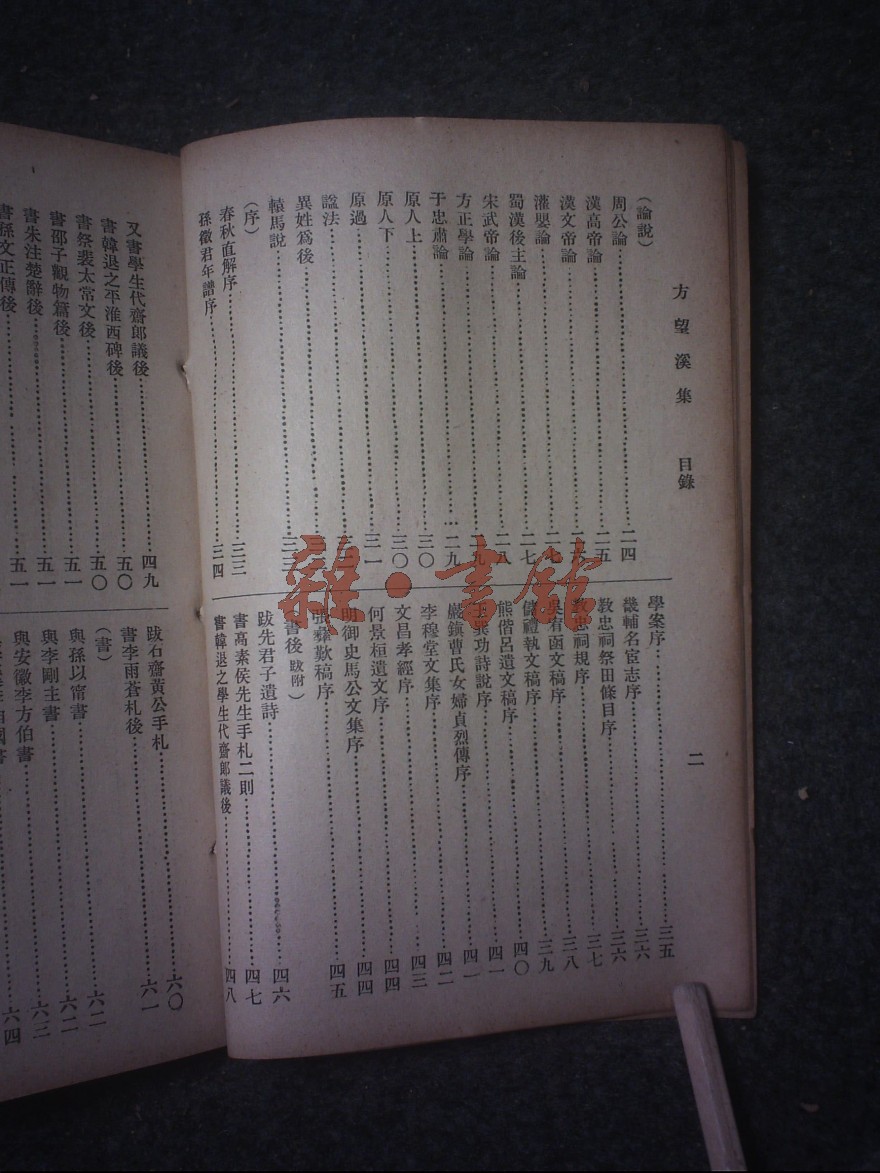 方望溪集 目錄
二
(論說)
周公論 二四
漢高帝論 二五
漢文帝論
灌嬰論 二七
蜀漢後主論 二七
宋武帝論 二八
方正學論 二九
于忠肅論 二九
原人上 三〇
原人下 三〇
原過 三一
諡法
異姓爲後
轅馬說 三三
(序)
春秋直解序 三三
孫徵君年譜序 三四
學案序 三五
畿輔名宦志序 三六
教忠祠祭田條目序 三六
教忠祠規序 三七
吳宥函文稿序 三八
儲禮執文稿序 三九
熊偕呂遺文稿序 四〇
巽功詩說序 四一
嚴鎮曹氏女婦貞烈傳序 四一
李穆堂文集序 四二
文昌孝經序 四三
何景桓遺文序 四四
明御史馬公文集序 四四
張彝歎稿序 四五
書後 跋附)
跋先君子遺詩 四六
書高素侯先生手札二則 四七
書韓退之學生代齋郎議後 四八
又書學生代齋郎議後 四九
書韓退之平淮西碑後 五〇
書祭裴太常文後 五〇
書邵子觀物篇後 五一
書朱注楚辭後 五一
書孫文正傳後 五一
跋石齋黃公手札 六〇
書李雨蒼札後 六一
(書)
與孫以甯書 六二
與李剛主書 六二
與安徽李方伯書 六三
六四
雜·書館